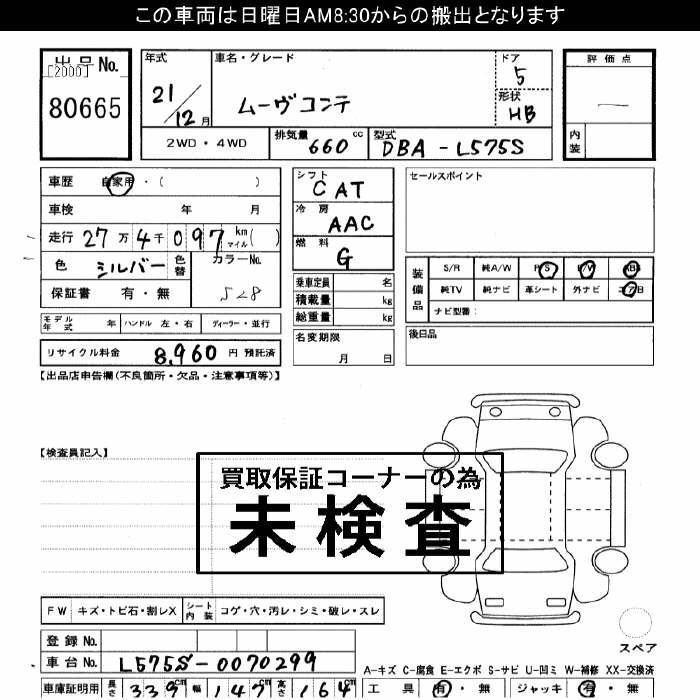 この車両は日曜日AM8:30からの搬出となります
出品 No.
[2000]
80665
年式
21/12月
車名・グレード
ムーヴコンテ
ドア
5
形状
HB
評価点
内装
2WD・4WD
排気量 660 cc
型式 DBA-L575S
車歴 自家用・( )
車検 年 月
走行 27万4千097 km マイル( )
色 シルバー 色替 カラーNo.
保証書 有・無 S28
モデル年式 年 ハンドル 左・右 ディーラー・並行
リサイクル料金 8,960 円 預託済
シフト CAT
冷房 AAC
燃料 G
乗車定員 名
積載量 kg
総重量 kg
名変期限
月 日
セールスポイント
装備品
S/R 純A/W P/S P/W ABS
純TV 純ナビ 革シート 外ナビ エアB
ナビ型番:
後日品
【出品店申告欄(不良箇所・欠品・注意事項等)】
【検査員記入】
買取保証コーナーの為
未検査
FW キズ・トビ石・割レX シート内装 コゲ・穴・汚レ・シミ・破レ・スレ
スペア
登録 No.
車台 No. L575S-0070299
A-キズ C-腐食 E-エクボ S-サビ U-凹ミ W-補修 XX-交換済
車庫証明用 長さ 339cm 幅 147cm 高さ 164cm
工具 有・無 ジャッキ 有・無